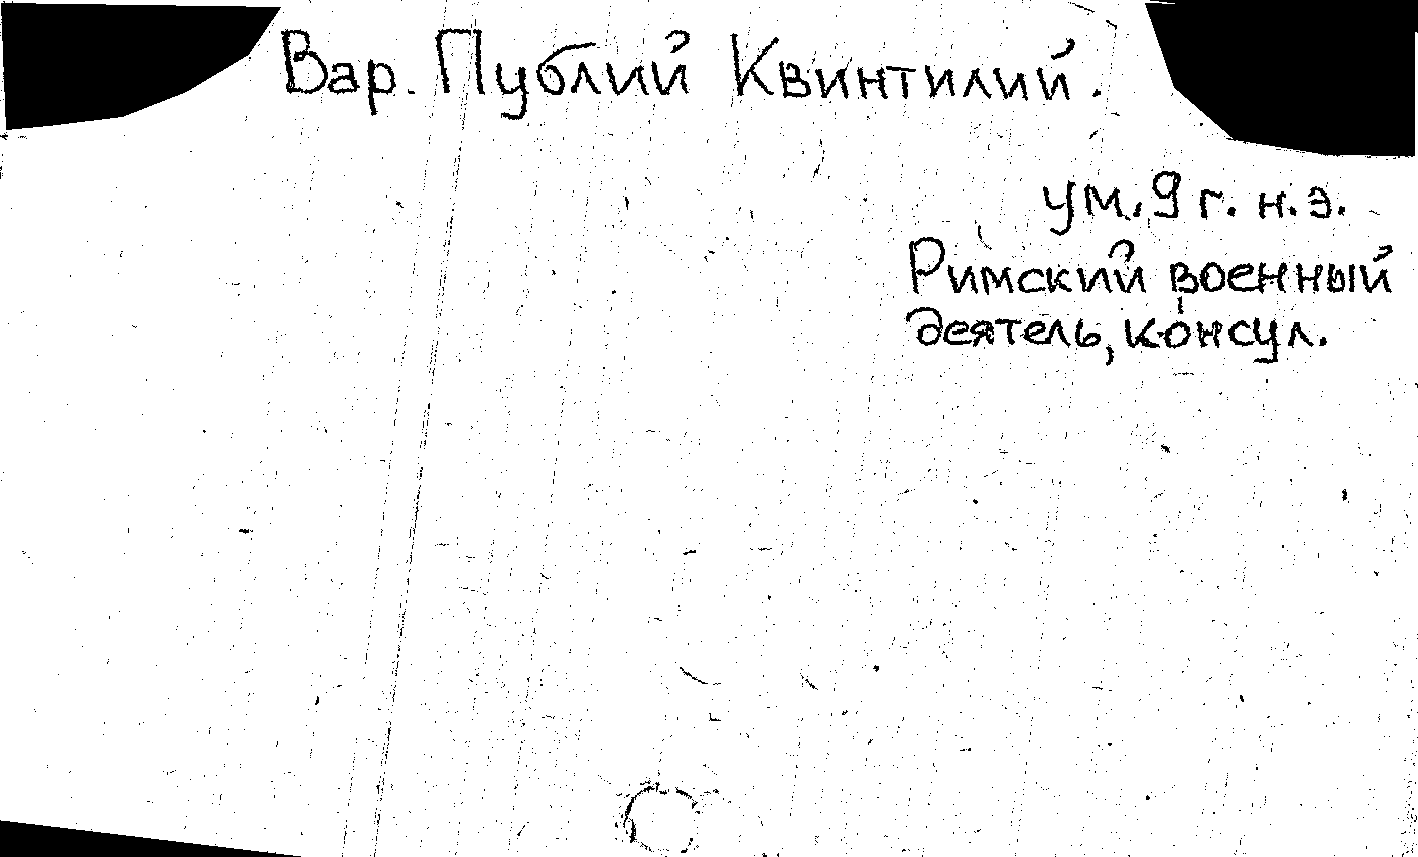 Вар. Публий Квинтилий.
ум. 9 г. н.э.
Римский военный
деятель, консул.